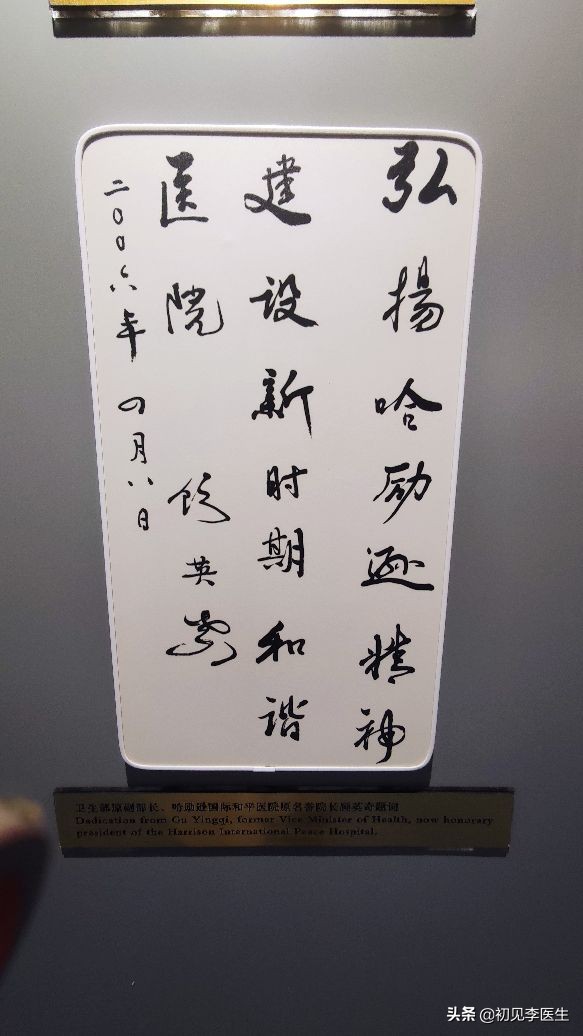 弘揚哈励逊精神
建设新时期和谐
医院 顾英奇
二〇〇六年四月八日
卫生部原副部长、哈励逊国际和平医院原名誉院长顾英奇题词
Dadication from Gu Yingqi, former Vice Minister of Health, now honorary
president of the Harrison International Peace Hospital.
头条 @初见李医生